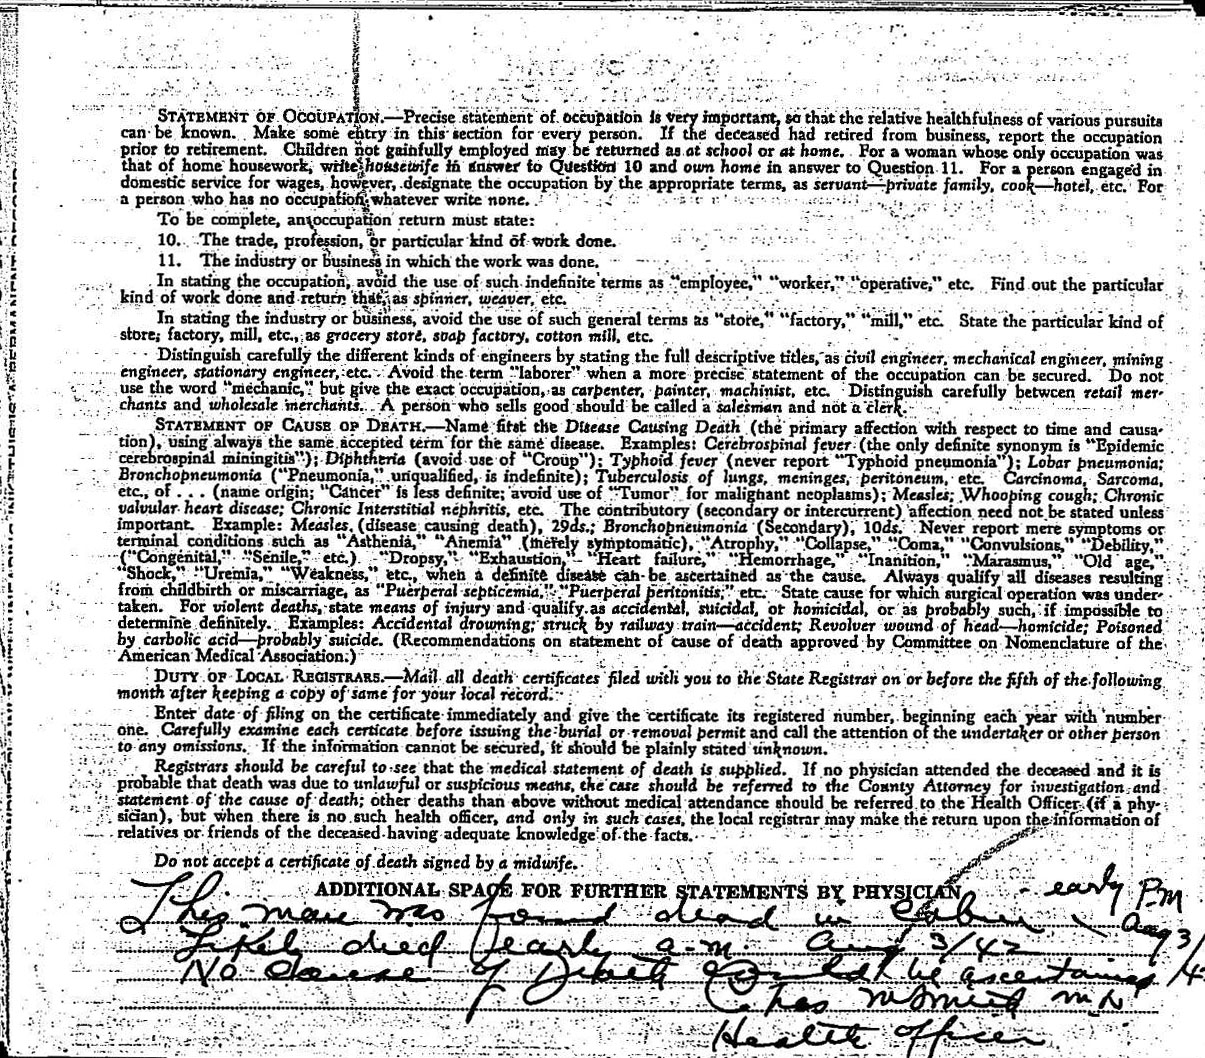 STATEMENT OF OCCUPATION.—Precise statement of occupation is very important, so that the relative healthfulness of various pursuits
can be known. Make some entry in this section for every person. If the deceased had retired from business, report the occupation
prior to retirement. Children not gainfully employed may be returned as at school or at home. For a woman whose only occupation was
that of home housework, write housewife in answer to Question 10 and own home in answer to Question 11. For a person engaged in
domestic service for wages, however, designate the occupation by the appropriate terms, as servant—private family, cook—hotel, etc. For
a person who has no occupation whatever write none.
To be complete, an occupation return must state:
10. The trade, profession, or particular kind of work done.
11. The industry or business in which the work was done.
In stating the occupation, avoid the use of such indefinite terms as "employee," "worker," "operative," etc. Find out the particular
kind of work done and return that, as spinner, weaver, etc.
In stating the industry or business, avoid the use of such general terms as "store," "factory," "mill," etc. State the particular kind of
store, factory, mill, etc., as grocery store, soap factory, cotton mill, etc.
Distinguish carefully the different kinds of engineers by stating the full descriptive titles, as civil engineer, mechanical engineer, mining
engineer, stationary engineer, etc. Avoid the term "laborer" when a more precise statement of the occupation can be secured. Do not
use the word "mechanic," but give the exact occupation, as carpenter, painter, machinist, etc. Distinguish carefully between retail mer-
chants and wholesale merchants. A person who sells good should be called a salesman and not a clerk.
STATEMENT OF CAUSE OF DEATH.—Name first the Disease Causing Death (the primary affection with respect to time and causa-
tion), using always the same accepted term for the same disease. Examples: Cerebrospinal fever (the only definite synonym is "Epidemic
cerebrospinal miningitis"); Diphtheria (avoid use of "Croup"); Typhoid fever (never report "Typhoid pneumonia"); Lobar pneumonia;
Bronchopneumonia ("Pneumonia," unqualified, is indefinite); Tuberculosis of lungs, meninges, peritoneum, etc. Carcinoma, Sarcoma,
etc., of . . . (name origin; "Cancer" is less definite; avoid use of "Tumor" for malignant neoplasms); Measles; Whooping cough; Chronic
valvular heart disease; Chronic Interstitial nephritis, etc. The contributory (secondary or intercurrent) affection need not be stated unless
important. Example: Measles (disease causing death), 29ds.; Bronchopneumonia (Secondary), 10ds. Never report mere symptoms or
terminal conditions such as "Asthenia," "Anemia" (merely symptomatic), "Atrophy," "Collapse," "Coma," "Convulsions," "Debility,"
("Congenital," "Senile," etc.) "Dropsy," "Exhaustion," "Heart failure," "Hemorrhage," "Inanition," "Marasmus," "Old age,"
"Shock," "Uremia," "Weakness," etc., when a definite disease can be ascertained as the cause. Always qualify all diseases resulting
from childbirth or miscarriage, as "Puerperal septicemia," "Puerperal peritonitis," etc. State cause for which surgical operation was under-
taken. For violent deaths, state means of injury and qualify as accidental, suicidal, or homicidal, or as probably such, if impossible to
determine definitely. Examples: Accidental drowning; struck by railway train—accident; Revolver wound of head—homicide; Poisoned
by carbolic acid—probably suicide. (Recommendations on statement of cause of death approved by Committee on Nomenclature of the
American Medical Association.)
DUTY OF LOCAL REGISTRARS.—Mail all death certificates filed with you to the State Registrar on or before the fifth of the following
month after keeping a copy of same for your local record.
Enter date of filing on the certificate immediately and give the certificate its registered number, beginning each year with number
one. Carefully examine each certicate before issuing the burial or removal permit and call the attention of the undertaker or other person
to any omissions. If the information cannot be secured, it should be plainly stated unknown.
Registrars should be careful to see that the medical statement of death is supplied. If no physician attended the deceased and it is
probable that death was due to unlawful or suspicious means, the case should be referred to the County Attorney for investigation and
statement of the cause of death; other deaths than above without medical attendance should be referred to the Health Officer (if a phy-
sician), but when there is no such health officer, and only in such cases, the local registrar may make the return upon the information of
relatives or friends of the deceased having adequate knowledge of the facts.
Do not accept a certificate of death signed by a midwife.
ADDITIONAL SPACE FOR FURTHER STATEMENTS BY PHYSICIAN
This man was found dead in cabin early P.M Aug 3/4
Likely died early a.m. Aug 3/42
No Cause of Death Could be ascertained
Chas M.D
Health Officer